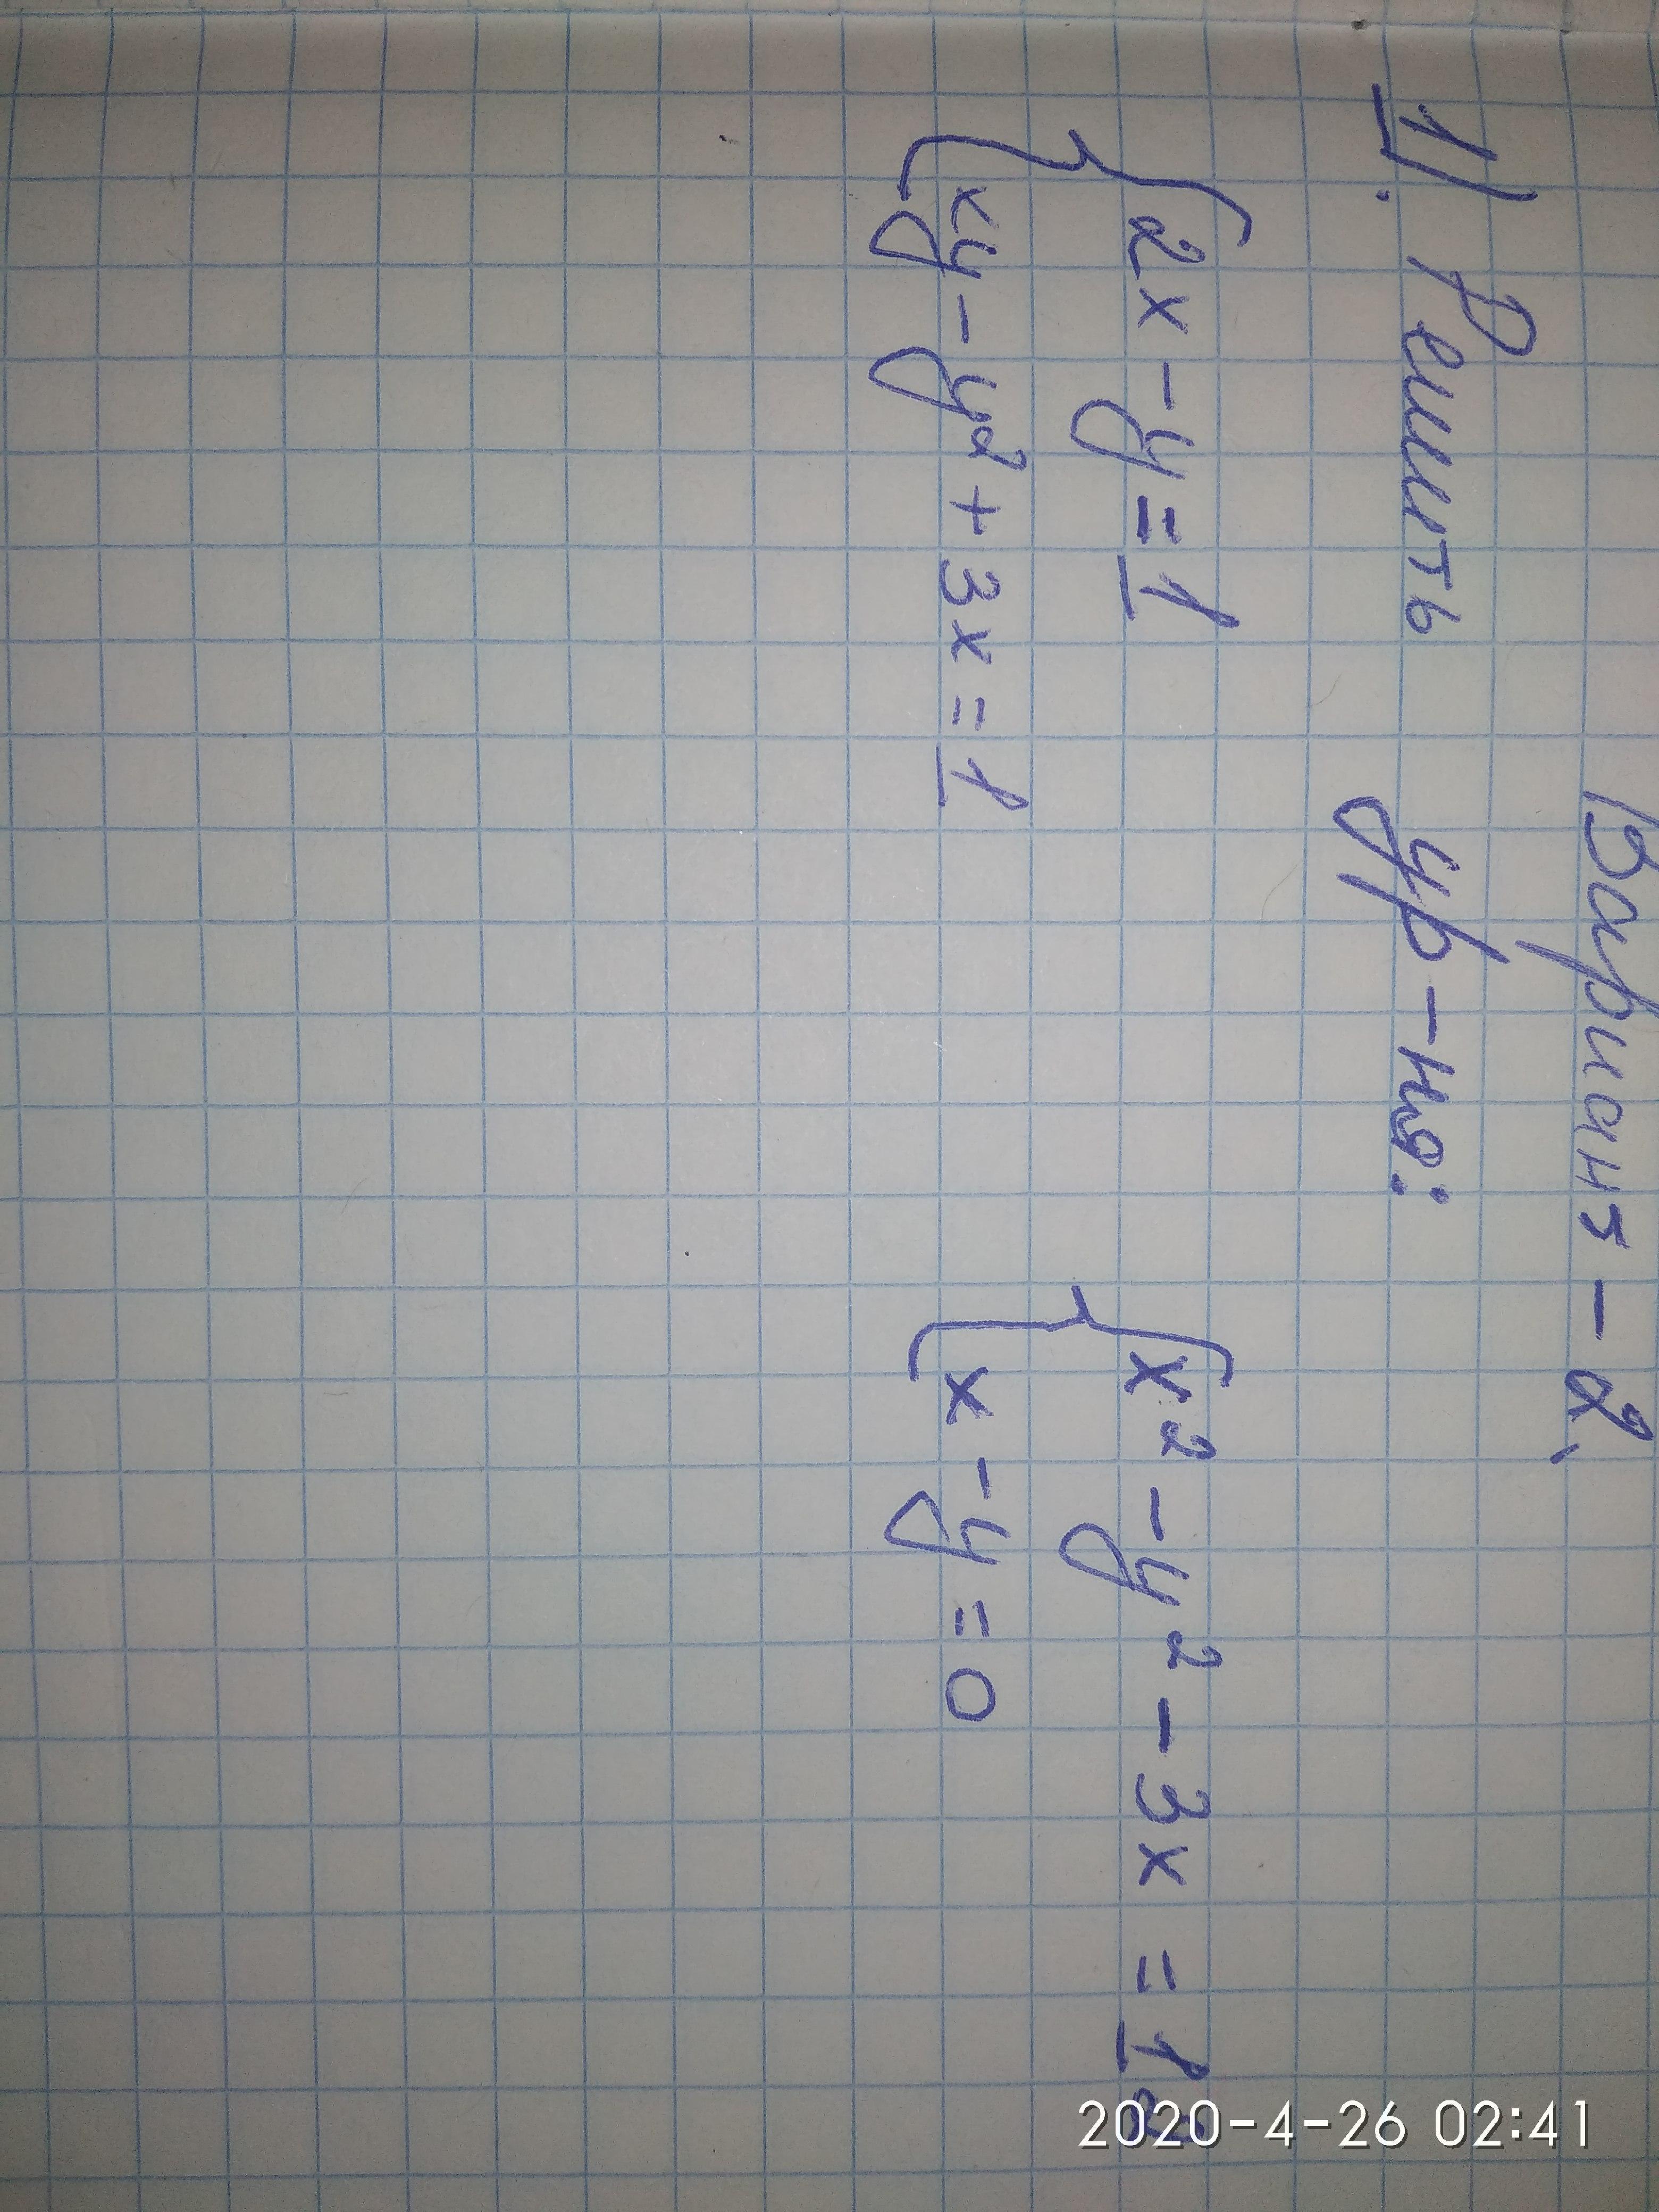 Вариант - 2.
1). Решить ур-ния:
2x - y = 1
xy - y² + 3x = 1
x² - y² - 3x = 12
x - y = 0
2020-4-26 02:41